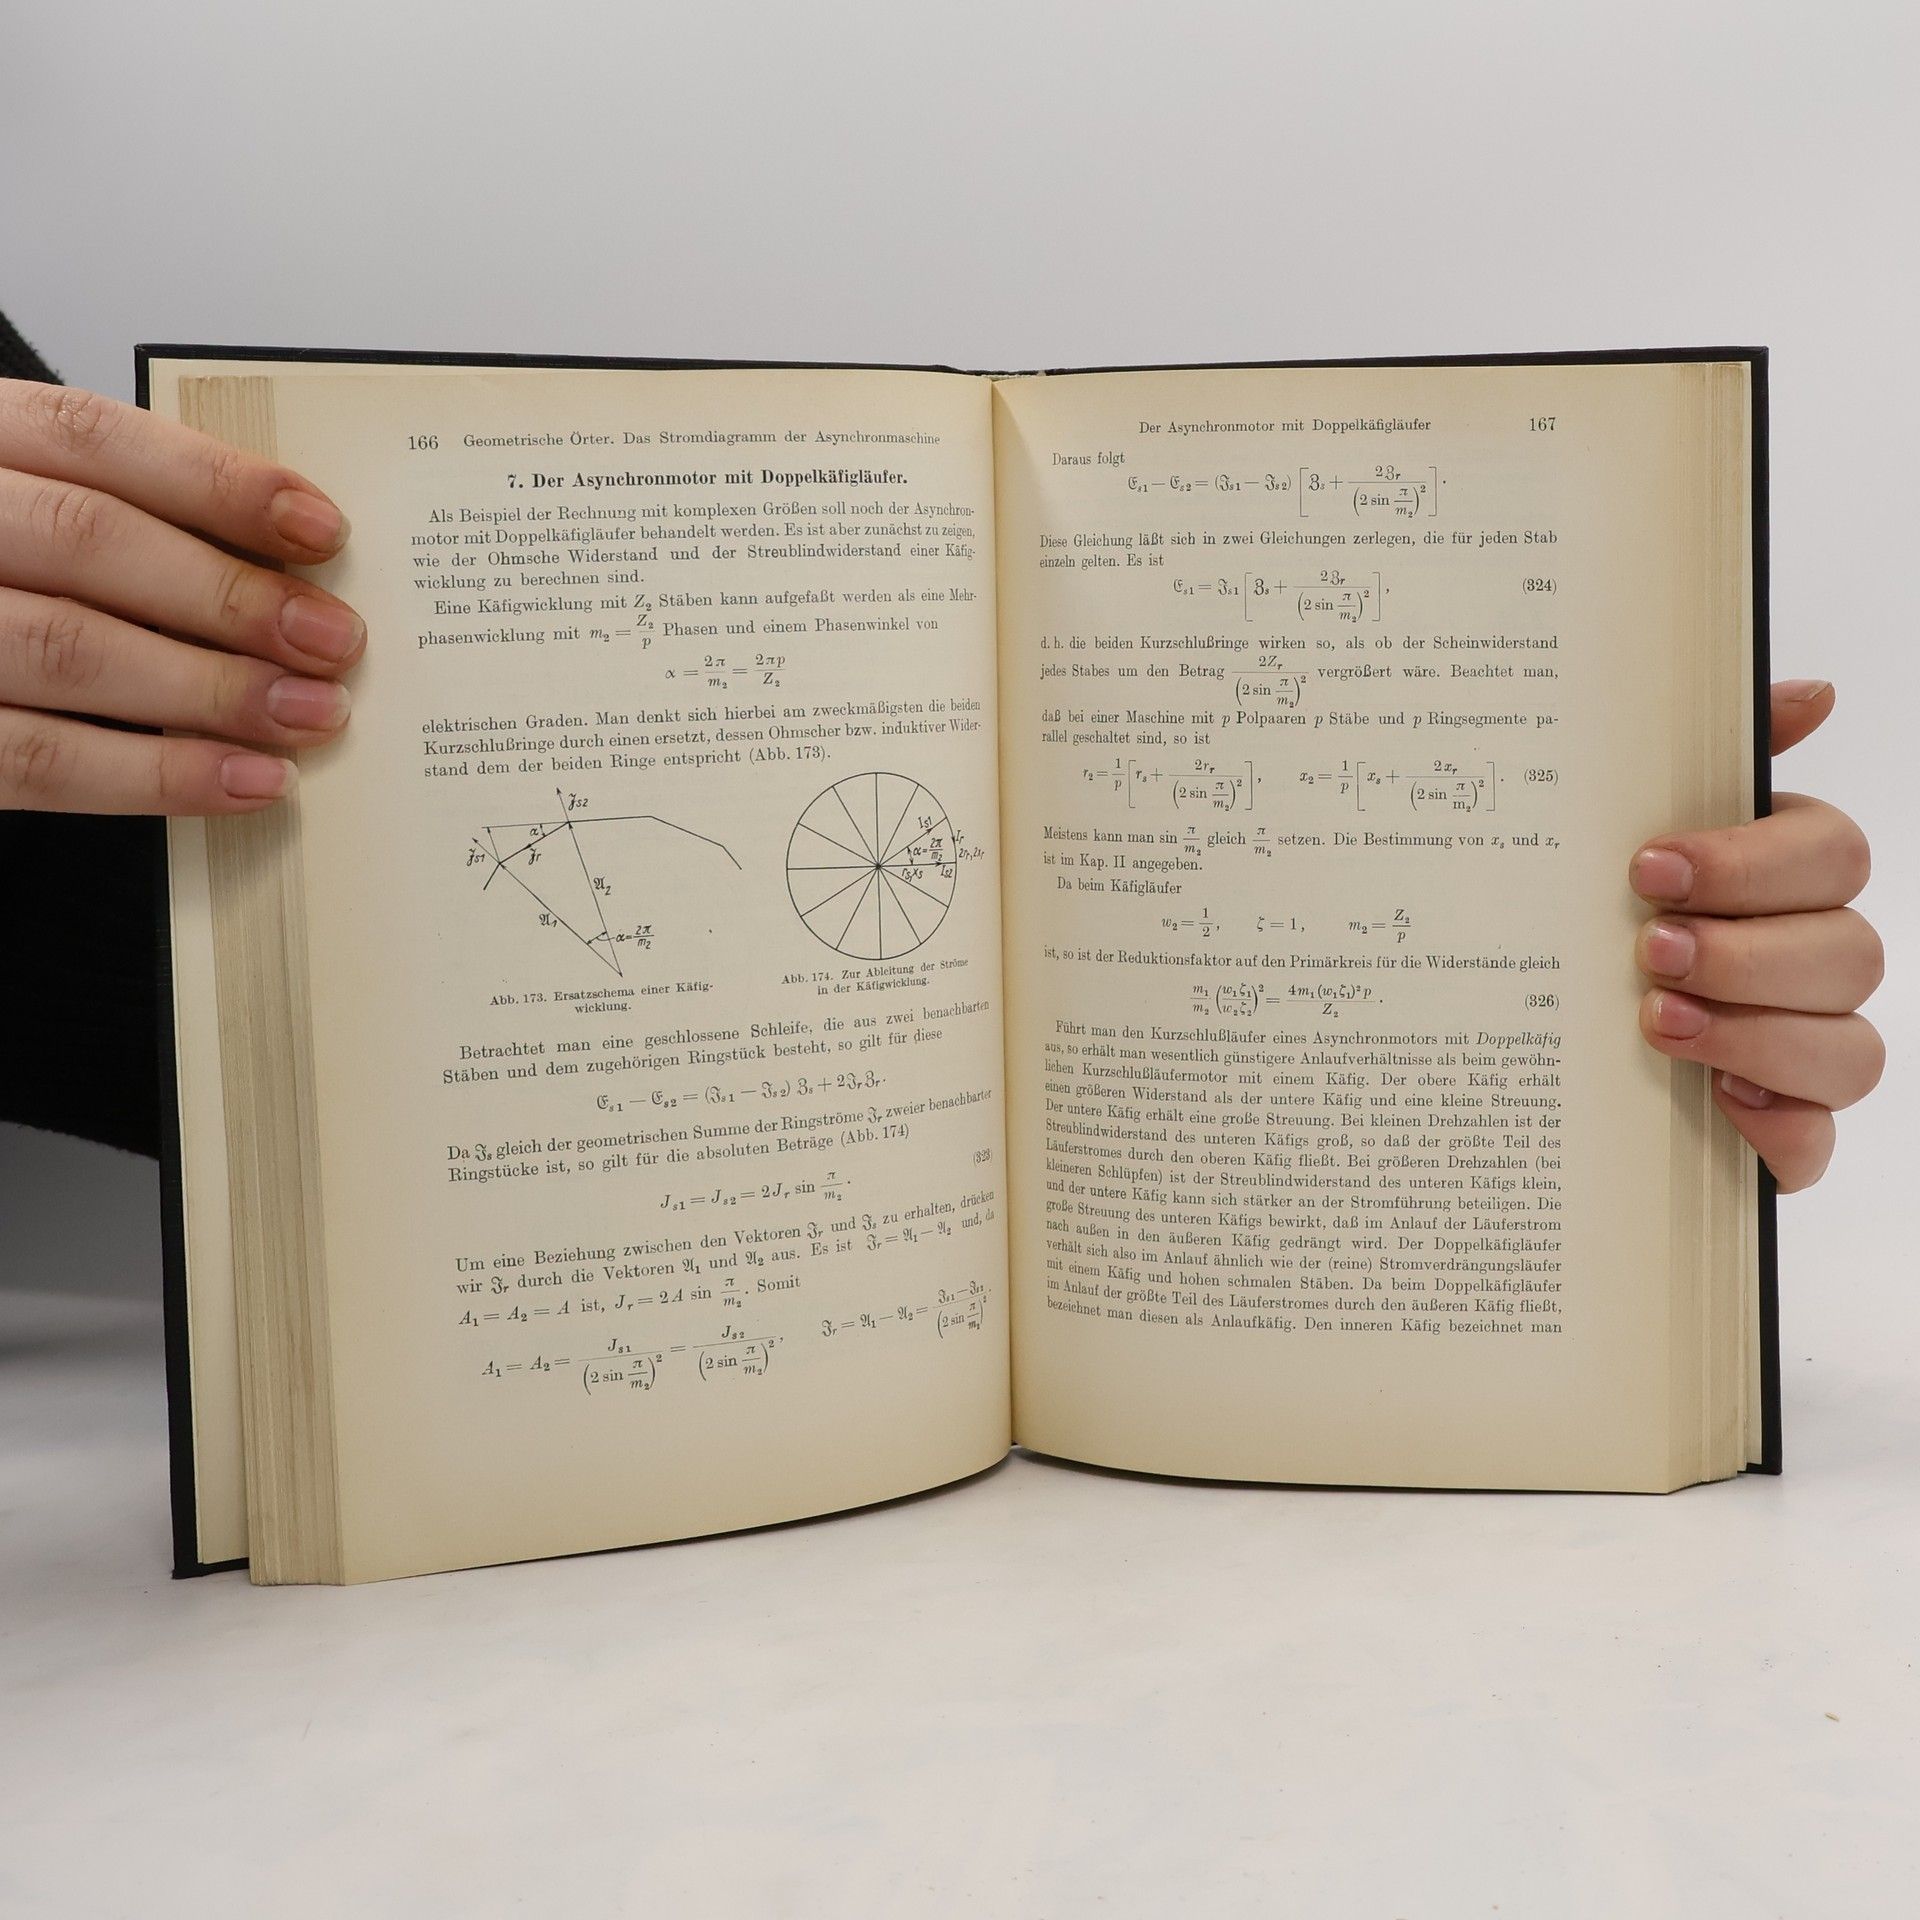 166 Geometrische Örter. Das Stromdiagramm der Asynchronmaschine
7. Der Asynchronmotor mit Doppelkäfigläufer.
Als Beispiel der Rechnung mit komplexen Größen soll noch der Asynchron-
motor mit Doppelkäfigläufer behandelt werden. Es ist aber zunächst zu zeigen,
wie der Ohmsche Widerstand und der Streublindwiderstand einer Käfig-
wicklung zu berechnen sind.
Eine Käfigwicklung mit Z₂ Stäben kann aufgefaßt werden als eine Mehr-
phasenwicklung mit m₂ = Z₂/p Phasen und einem Phasenwinkel von
α = 2π/m₂ = 2πp/Z₂
elektrischen Graden. Man denkt sich hierbei am zweckmäßigsten die beiden
Kurzschlußringe durch einen ersetzt, dessen Ohmscher bzw. induktiver Wider-
stand dem der beiden Ringe entspricht (Abb. 173).
ℑs2
α
ℑs1
ℑr
𝔄₂
𝔄₁
α=2π/m₂
Abb. 173. Ersatzschema einer Käfig-
wicklung.
Is1
Ir
α=2π/m₂
2rr, 2xr
rs, xs
Is2
Abb. 174. Zur Ableitung der Ströme
in der Käfigwicklung.
Betrachtet man eine geschlossene Schleife, die aus zwei benachbarten
Stäben und dem zugehörigen Ringstück besteht, so gilt für diese
𝔈s1 − 𝔈s2 = (ℑs1 − ℑs2) ℨs + 2ℑrℨr.
Da ℑs gleich der geometrischen Summe der Ringströme ℑr zweier benachbarter
Ringstücke ist, so gilt für die absoluten Beträge (Abb. 174)
Js1 = Js2 = 2Jr sin π/m₂. (323)
Um eine Beziehung zwischen den Vektoren ℑr und ℑs zu erhalten, drücken
wir ℑr durch die Vektoren 𝔄₁ und 𝔄₂ aus. Es ist ℑr = 𝔄₁ − 𝔄₂ und, da
A₁ = A₂ = A ist, Jr = 2A sin π/m₂. Somit
A₁ = A₂ = Js1/(2 sin π/m₂)² = Js2/(2 sin π/m₂)², ℑr = 𝔄₁ − 𝔄₂ = (ℑs1 − ℑs2)/(2 sin π/m₂)².
Der Asynchronmotor mit Doppelkäfigläufer 167
Daraus folgt
𝔈s1 − 𝔈s2 = (ℑs1 − ℑs2) [ℨs + 2ℨr/(2 sin π/m₂)²].
Diese Gleichung läßt sich in zwei Gleichungen zerlegen, die für jeden Stab
einzeln gelten. Es ist
𝔈s1 = ℑs1 [ℨs + 2ℨr/(2 sin π/m₂)²], (324)
d. h. die beiden Kurzschlußringe wirken so, als ob der Scheinwiderstand
jedes Stabes um den Betrag 2Zr/(2 sin π/m₂)² vergrößert wäre. Beachtet man,
daß bei einer Maschine mit p Polpaaren p Stäbe und p Ringsegmente pa-
rallel geschaltet sind, so ist
r₂ = 1/p [rs + 2rr/(2 sin π/m₂)²], x₂ = 1/p [xs + 2xr/(2 sin π/m₂)²]. (325)
Meistens kann man sin π/m₂ gleich π/m₂ setzen. Die Bestimmung von xs und xr
ist im Kap. II angegeben.
Da beim Käfigläufer
w₂ = 1/2, ζ = 1, m₂ = Z₂/p
ist, so ist der Reduktionsfaktor auf den Primärkreis für die Widerstände gleich
m₁/m₂ (w₁ζ₁/w₂ζ₂)² = 4m₁(w₁ζ₁)²p/Z₂. (326)
Führt man den Kurzschlußläufer eines Asynchronmotors mit Doppelkäfig
aus, so erhält man wesentlich günstigere Anlaufverhältnisse als beim gewöhn-
lichen Kurzschlußläufermotor mit einem Käfig. Der obere Käfig erhält
einen größeren Widerstand als der untere Käfig und eine kleine Streuung.
Der untere Käfig erhält eine große Streuung. Bei kleinen Drehzahlen ist der
Streublindwiderstand des unteren Käfigs groß, so daß der größte Teil des
Läuferstromes durch den oberen Käfig fließt. Bei größeren Drehzahlen (bei
kleineren Schlüpfen) ist der Streublindwiderstand des unteren Käfigs klein,
und der untere Käfig kann sich stärker an der Stromführung beteiligen. Die
große Streuung des unteren Käfigs bewirkt, daß im Anlauf der Läuferstrom
nach außen in den äußeren Käfig gedrängt wird. Der Doppelkäfigläufer
verhält sich also im Anlauf ähnlich wie der (reine) Stromverdrängungsläufer
mit einem Käfig und hohen schmalen Stäben. Da beim Doppelkäfigläufer
im Anlauf der größte Teil des Läuferstromes durch den äußeren Käfig fließt,
bezeichnet man diesen als Anlaufkäfig. Den inneren Käfig bezeichnet man